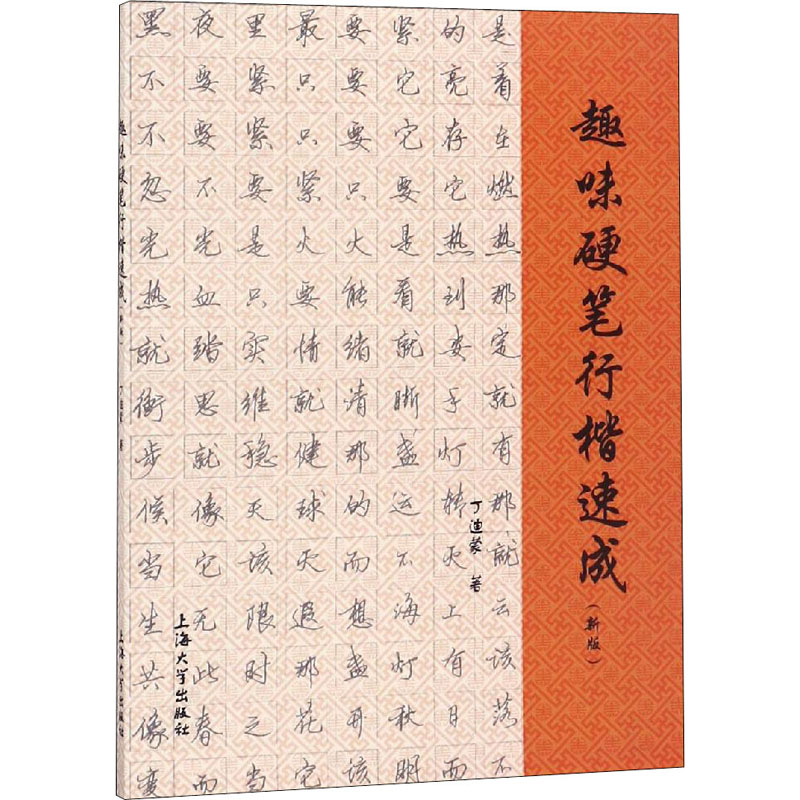 趣味硬笔行楷速成
（新版）
丁迪蒙 著
上海大学出版社
黑夜里最要紧的是
不要紧只要它亮着
不要紧只要它存在
忽不要紧只要它燃
光光是火火是热热
热血只要能看到那
就踏实情绪就安定
衡思维就清晰手就
步就稳健那盏灯有
候像天球的运转那
当它该灭而不灭就
生无限遐想海上云
共此时那盏灯有该
像春之花开秋日落
变而当它该明而不
趣味硬笔行楷速成（新版）
丁迪蒙 著
上海大学出版社